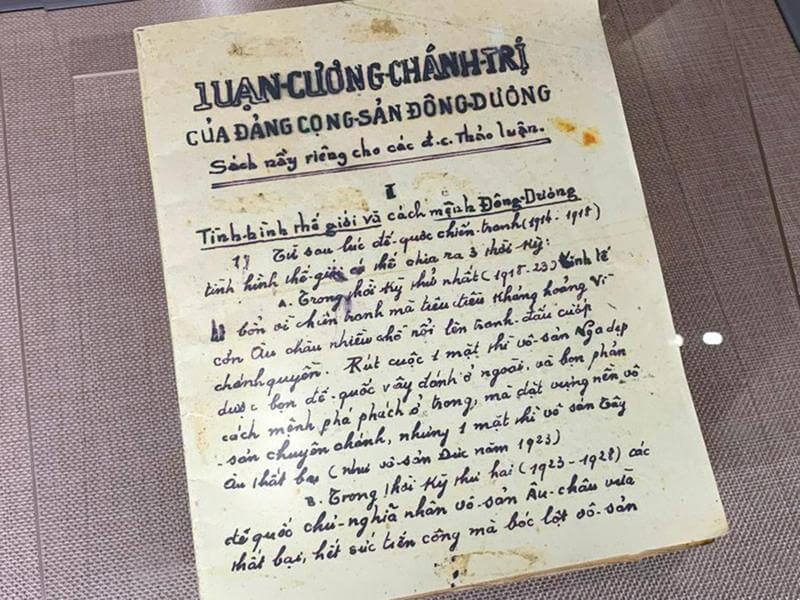 LUẬN-CƯƠNG-CHÁNH-TRỊ
CỦA ĐẢNG CỘNG-SẢN ĐÔNG-DƯƠNG
Sách nầy riêng cho các đ.c. Thảo luận.
I
Tình-hình thế giới và cách mệnh Đông-Dương
1) Từ sau lúc đế-quốc chiến-tranh (1914-1918)
tình hình thế-giới có thể chia ra 3 thời-kỳ:
A. Trong thời kỳ thứ nhất (1918-23) kinh tế
bổn vì chiến tranh mà tiêu tiền khủng hoảng Vì
cớn Âu châu nhiều chỗ nổi lên tranh-đấu cướp
chánh quyền. Rút cuộc 1 mặt thì vô-sản Nga dẹp
được bọn đế-quốc vây đánh ở ngoài, và bọn phản
cách mệnh phá phách ở trong, mà đặt vựng nền vô
-sản chuyên chánh, nhưng 1 mặt thì vô sản Tây
Âu thất bại (như vô-sản Đức năm 1923)
B. Trong thời kỳ thứ hai (1923-1928) các
đế quốc chủ-nghĩa nhân vô-sản Âu-châu vừa
thất bại, hết sức tiến công mà bóc lột vô-sản